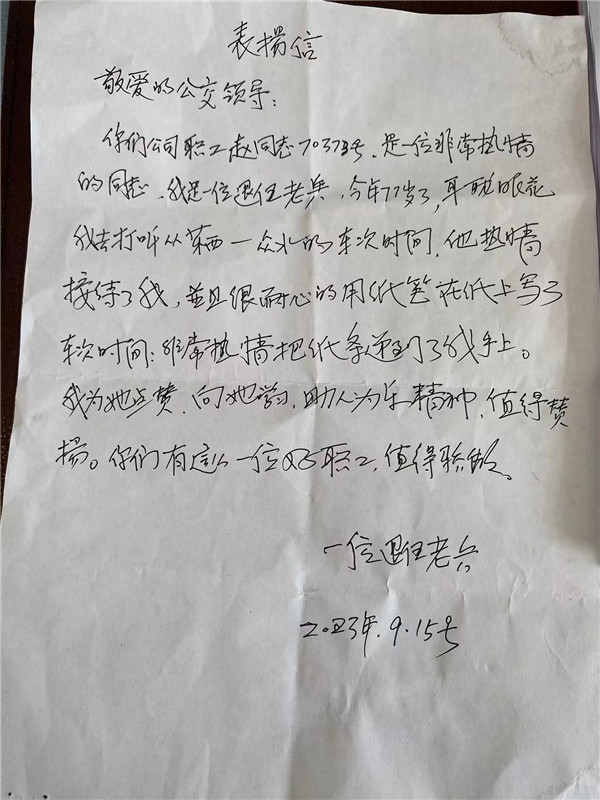 表揚信
敬爱的公交领导：
你们公司职工赵同志70373号，是一位非常热情
的同志，我是一位退任老兵，今年77岁了，耳聋眼花
我去打听从莱西一众水的车次时间，他热情
接待了我，並且很耐心的用纸笔在纸上写了
车次时间；非常热情把纸条递到了我手上。
我为她点赞，向她学习，助人为乐精神，值得赞
揚。你们有这么一位好职工，值得骄傲。
一位退任老兵
2023年.9.15号